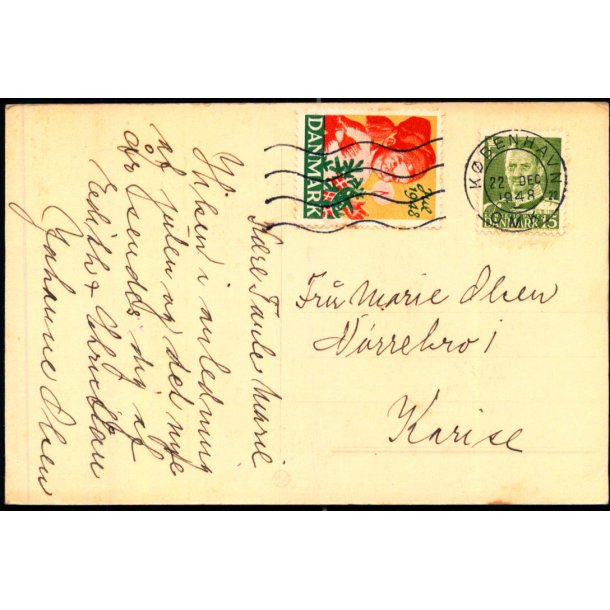 Kære Tante Marie
Hilsen i anledning
af julen og det nye
år sendes dig af
Edith & Christian
Johanne Olsen
DANMARK
Jul
1948
KØBENHAVN
22. DEC
1948
OMK.
DANMARK 15
Fru Marie Olsen
Nørrebro 1
Karise